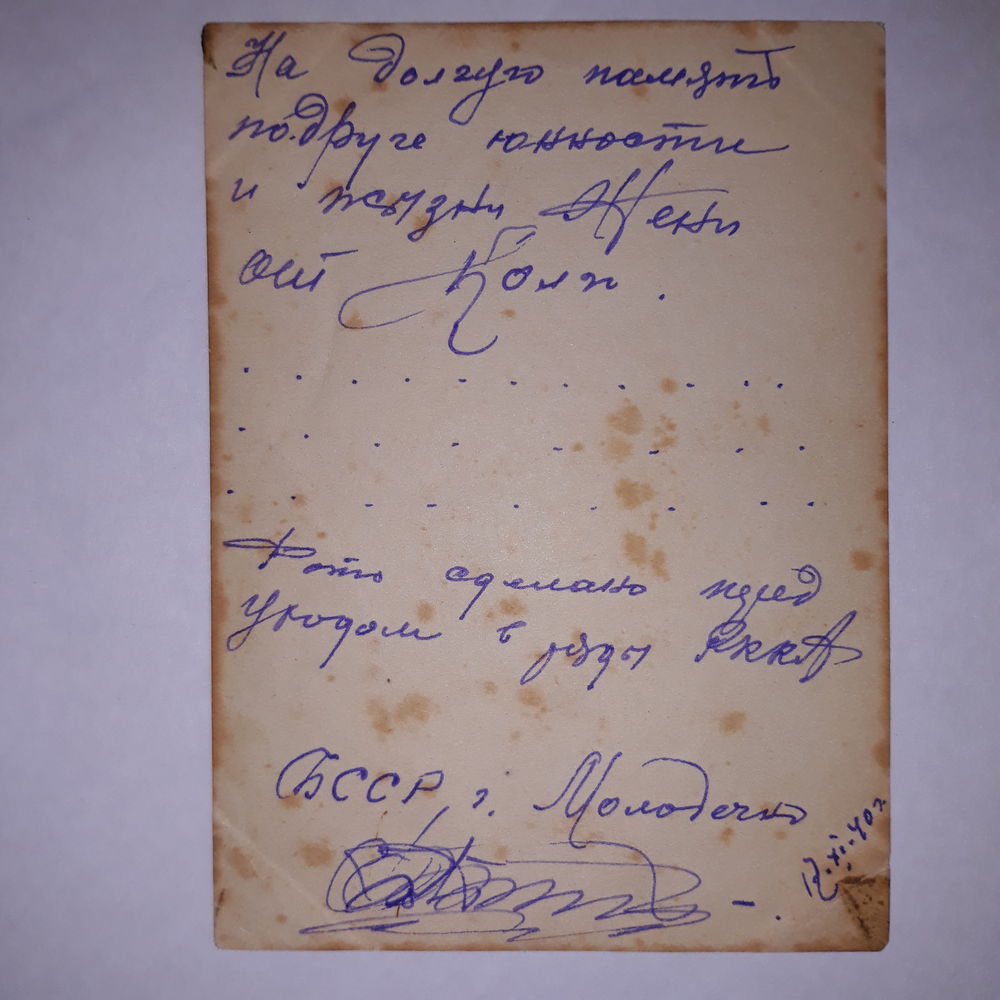 На долгую память
подруге юнности
и жызни Жени
от Коли.
Фото сделано пред
уходом в ряды РККА
БССР, г. Молодечно
12.XI.40 г.